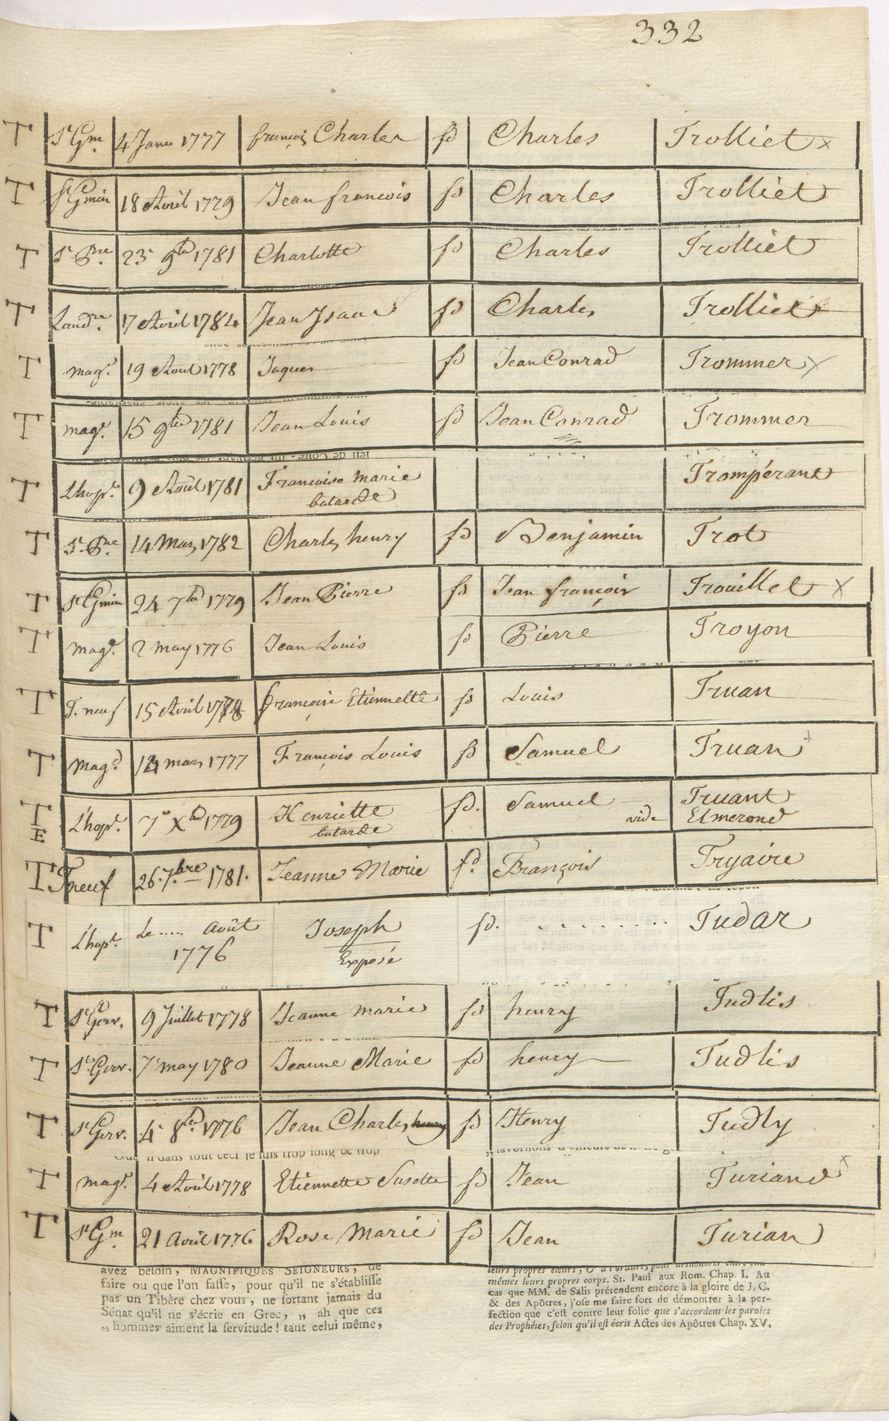 332
T St Gm. 4 Janv 1777 françois Charles fd Charles Trolliet x
T St Gmin 18 Avril 1779 Jean francois fd Charles Trolliet
T St Pre 23e 9bre 1781 Charlotte fd Charles Trolliet
T 17 Avril 1784 Jean Isaac fd Charles Trolliet
T mag.e 19 Aout 1778 Jaques fd Jean Conrad Trommer x
T mag.e 15 9bre 1781 Jean Louis fd Jean Conrad Trommer
T L'hop.l 9 Aout 1781 Francoise Marie Trompérant
batarde
T St Pre 14 Mars 1782 Charles henry fd Benjamin Trot
T St Gmin 24 7bre 1779 Jean Pierre fd Jean françois Trouillet x
T mag.e 2 may 1776 Jean Louis fd Pierre Troyon
T T. neuf 15 Avril françoise Etiennette fd Louis Truan
T Mag.e mars 1777 François Louis fd Samuel Truan +
T L'hop.l 7e Xbre 1779 Henriette fd. Samuel Truant
E batarde vide Elmerond
T T neuf 26. 7.bre 1781. Jeanne Marie fd François Tryaire
T L'hop.l Le .... Août Joseph fd. . . . . . . . . Tudar
1776 Exposé
T St Gerv. 9 Juillet 1778 Jeanne marie fd henry Tudlis
T St Gerv. 7e may 1780 Jeanne Marie fd henry Tudlis
T St Gerv. 4e 8bre 1776 Jean Charles henry fd Henry Tudly
T mag.e 4 Avril 1778 Etiennette Susette fd Jean Turiand x
T St Gm 21 Avril 1776 Rose Marie fd Jean Turian
avez besoin, MAGNIFIQUES SEIGNEURS, de
faire ou que l'on fasse, pour qu'il ne s'établisse
pas un Tibère chez vous, ne sortant jamais du
Sénat qu'il ne s'écrie en Grec, „ ah que ces
„ hommes aiment la servitude ! tant celui même,
mêmes leurs propres corps. St. Paul aux Rom. Chap. I. Au
cas que MM. de Salis prétendent encore à la gloire de J. C.
& des Apôtres, j'ose me faire fort de démontrer à la per-
fection que c'est contre leur folie que s'accordent les paroles
des Prophètes, selon qu'il est écrit Actes des Apôtres Chap. XV.